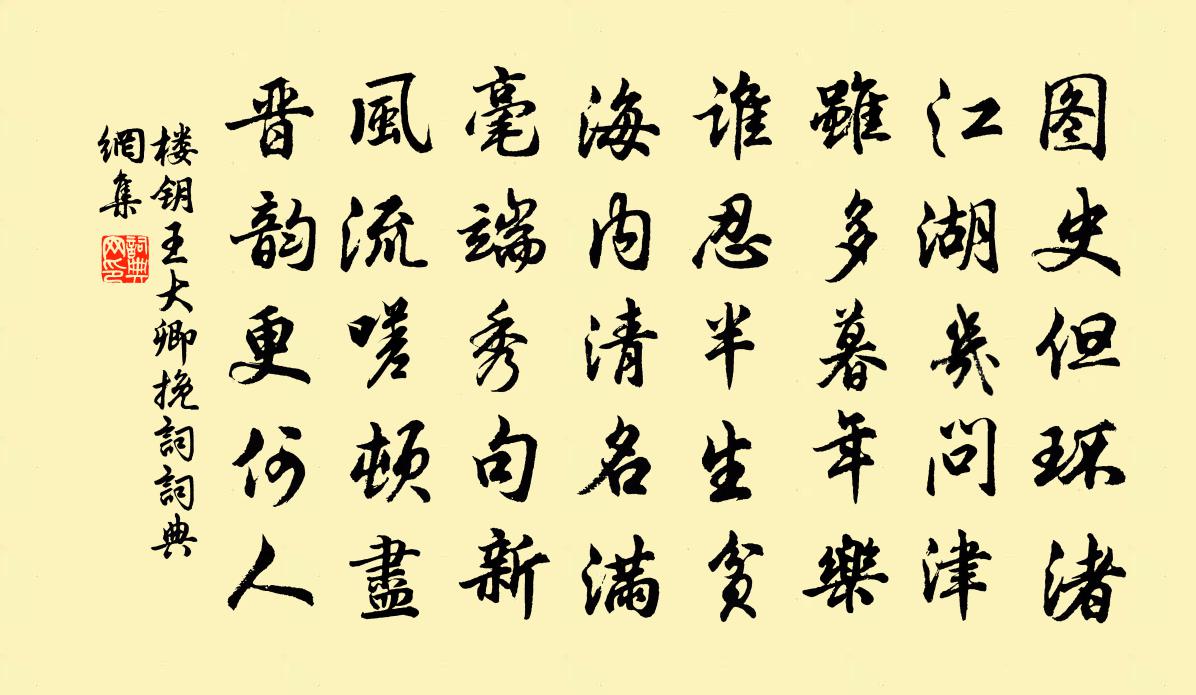 图史但环渚
江湖幾问津
雖多暮年樂
谁忍半生贫
海内清名满
毫端秀句新
風流嗟顿盡
晋韵更何人
楼钥王大卿挽詞詞典
網集
詞典
网印